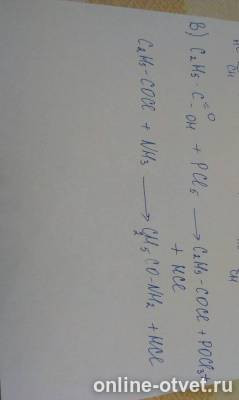 В) C2H5-C=O-OH + PCl5 → C2H5-COCl + POCl3 +
+ HCl
C2H5-COCl + NH3 → C2H5CO-NH2 + HCl
online-otvet.ru